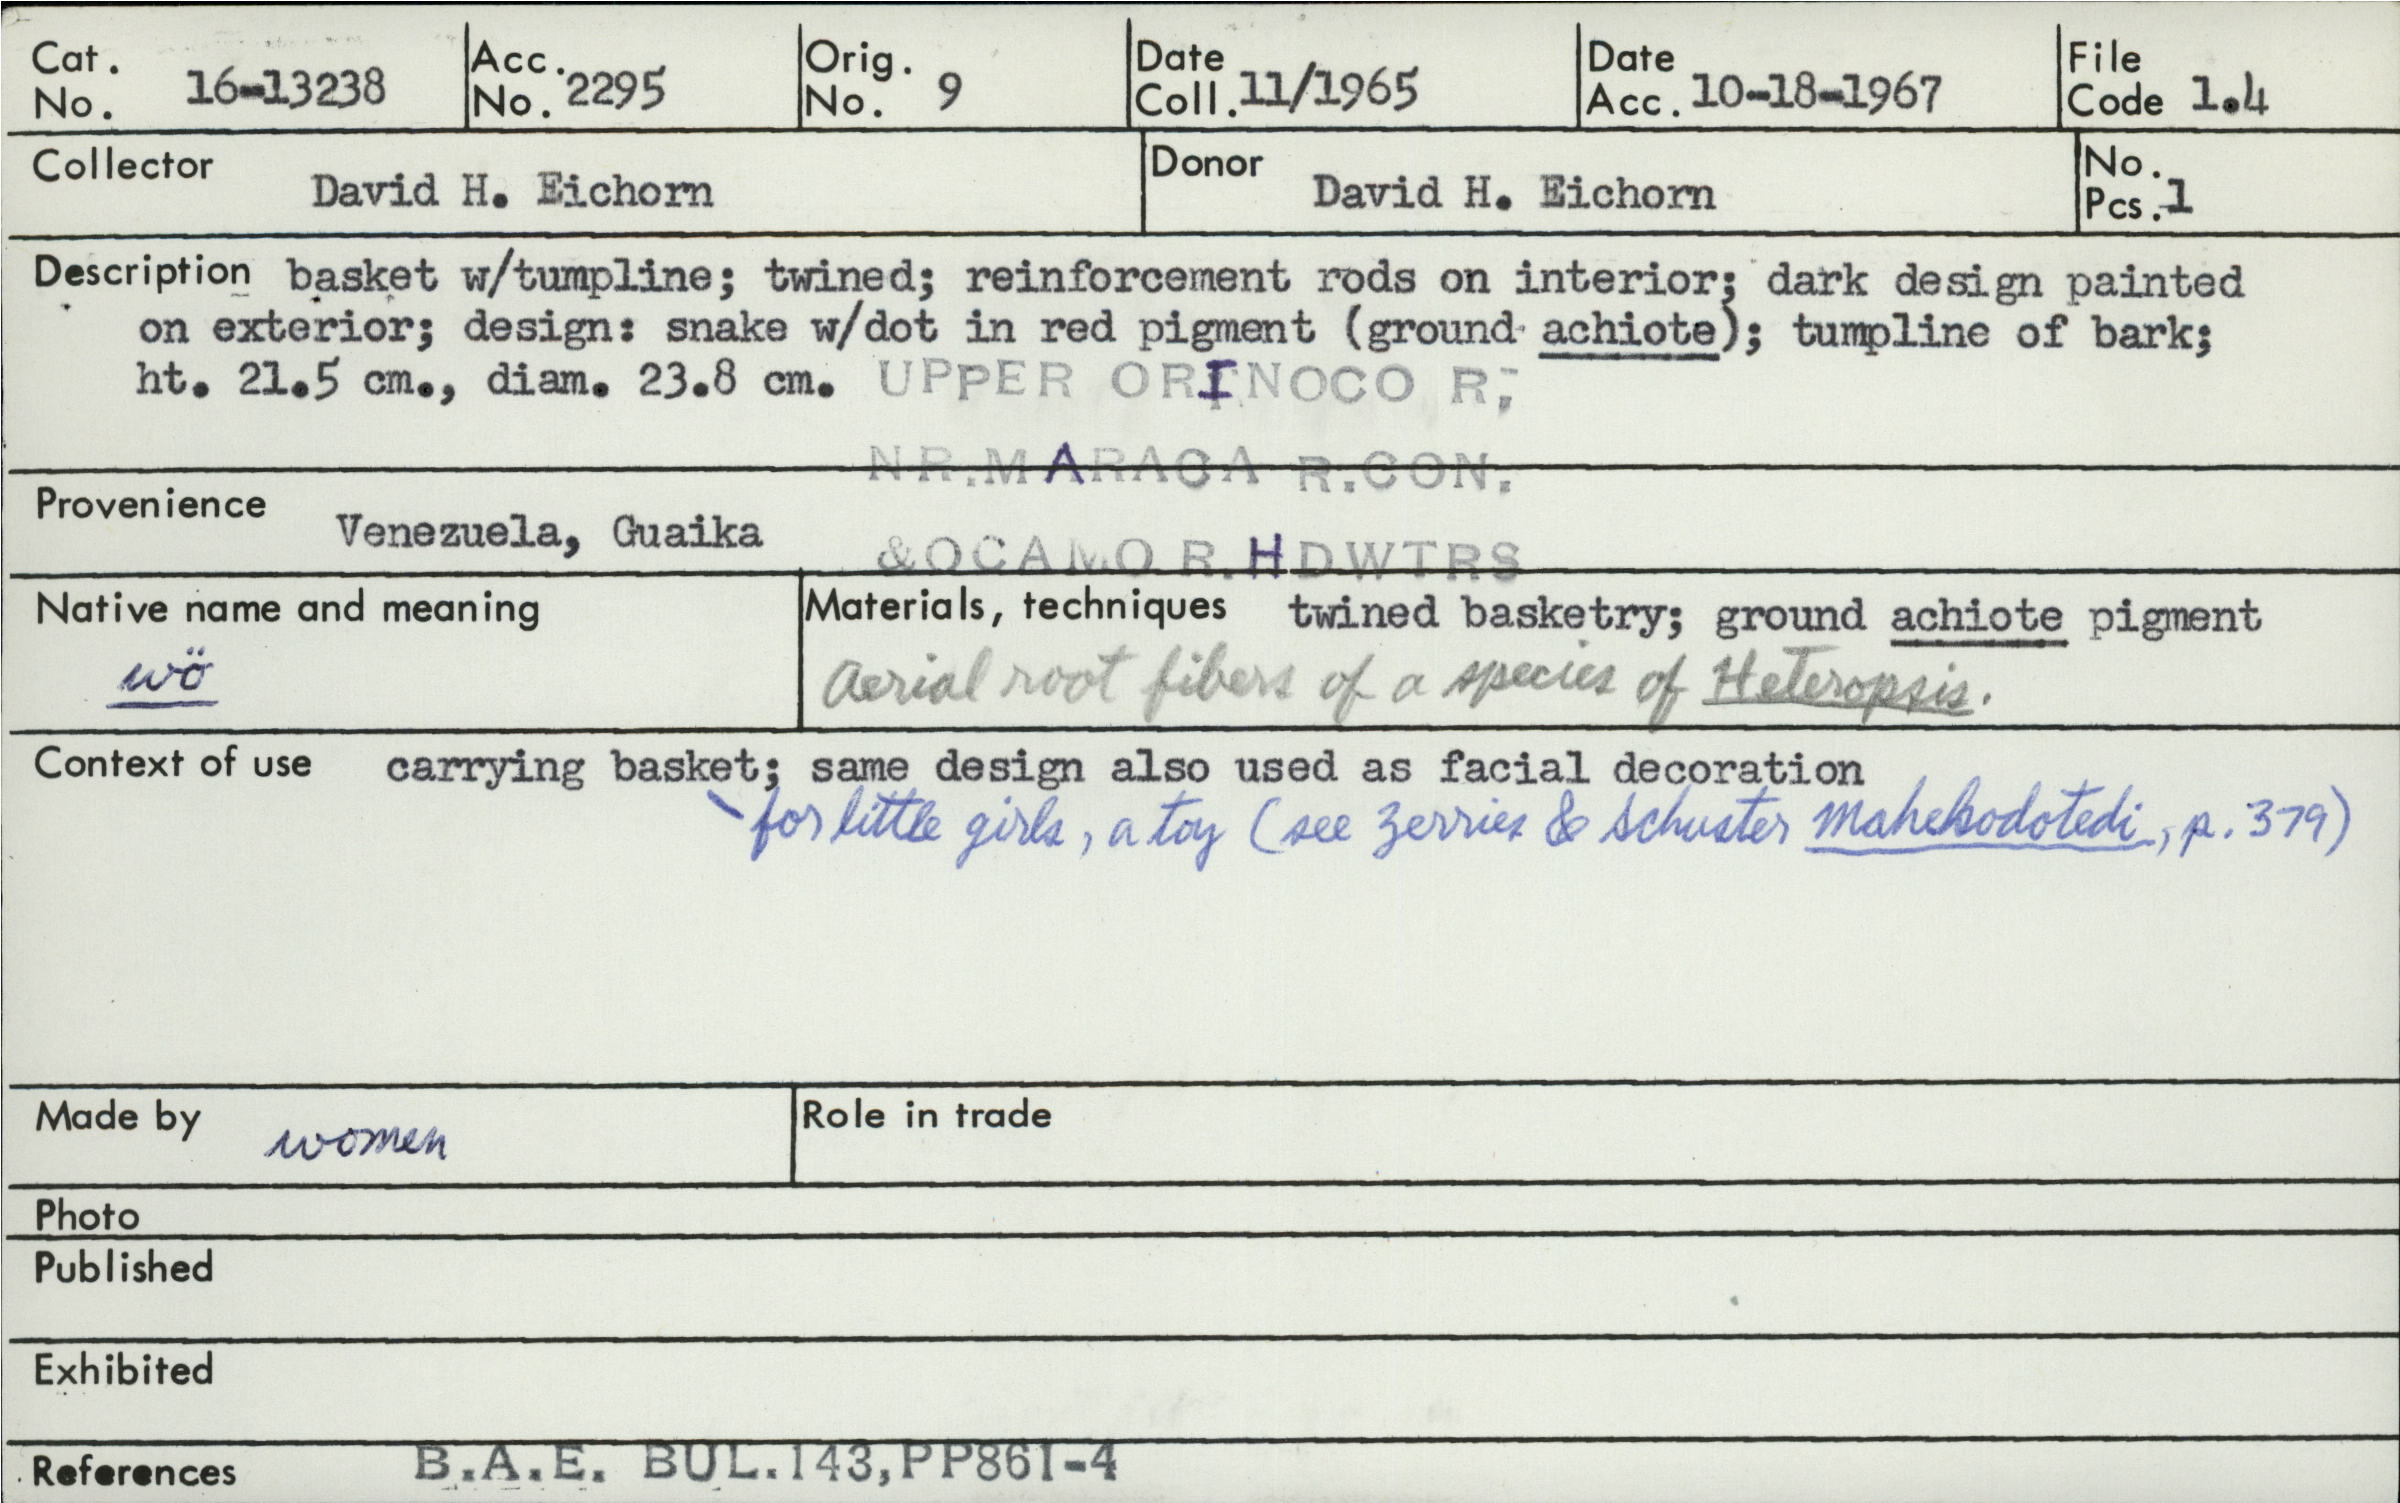 Cat. No. 16-13238 Acc. No. 2295 Orig. No. 9 Date Coll. 11/1965 Date Acc. 10-18-1967 File Code 1.4
Collector David H. Eichorn Donor David H. Eichorn No. Pcs. 1
Description basket w/tumpline; twined; reinforcement rods on interior; dark design painted
on exterior; design: snake w/dot in red pigment (ground achiote); tumpline of bark;
ht. 21.5 cm., diam. 23.8 cm. UPPER ORINOCO R;
NR.MARACA R.CON.
Provenience Venezuela, Guaika
&OCAMO R.HDWTRS
Native name and meaning
wö
Materials, techniques twined basketry; ground achiote pigment
Aerial root fibers of a species of Heteropsis.
Context of use carrying basket; same design also used as facial decoration
for little girls, a toy (see Zerries & Schuster Mahekodotedi, p. 379)
Made by women Role in trade
Photo
Published
Exhibited
References B.A.E. BUL.143,PP861-4